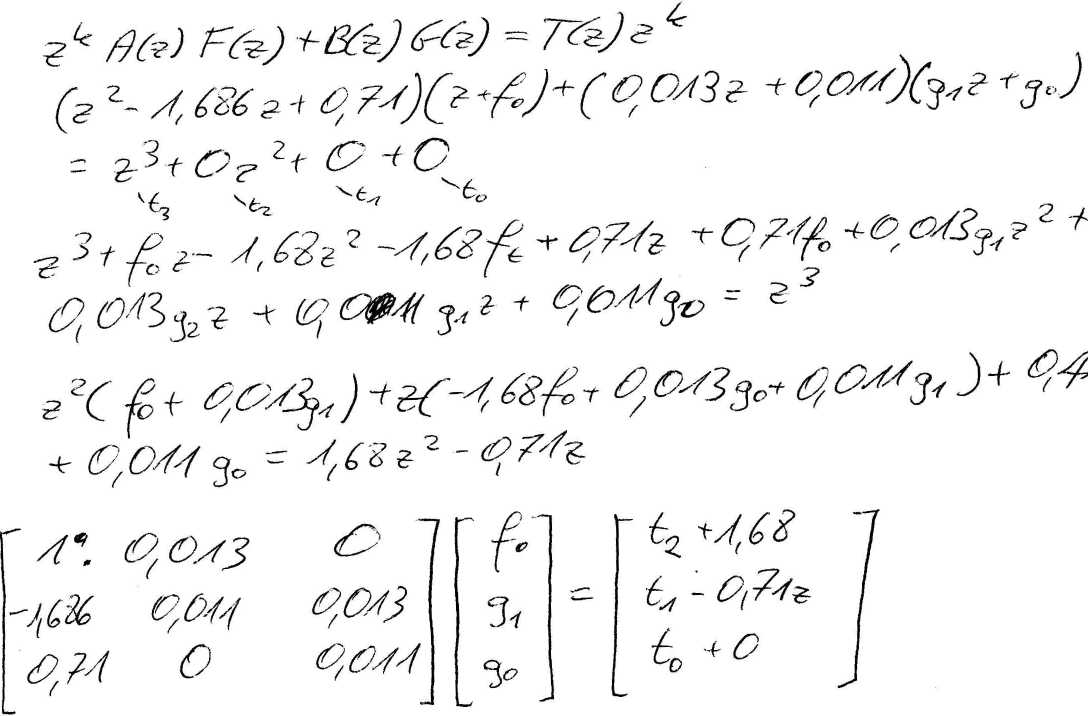 z^k A(z) F(z) + B(z) G(z) = T(z) z^k
(z² - 1,686z + 0,71)(z + f₀) + (0,013z + 0,011)(g₁z + g₀)
= z³ + 0z² + 0 + 0
t₃ t₂ t₁ t₀
z³ + f₀z - 1,68z² - 1,68f_t + 0,71z + 0,71f₀ + 0,013g₁z² +
0,013g₂z + 0,011g₁z + 0,011g₀ = z³
z²(f₀ + 0,013g₁) + z(-1,68f₀ + 0,013g₀ + 0,011g₁) + 0,4
+ 0,011g₀ = 1,68z² - 0,71z
[1. 0,013 0] [f₀] = [t₂ + 1,68]
[-1,686 0,011 0,013] [g₁] [t₁ - 0,71z]
[0,71 0 0,011] [g₀] [t₀ + 0]